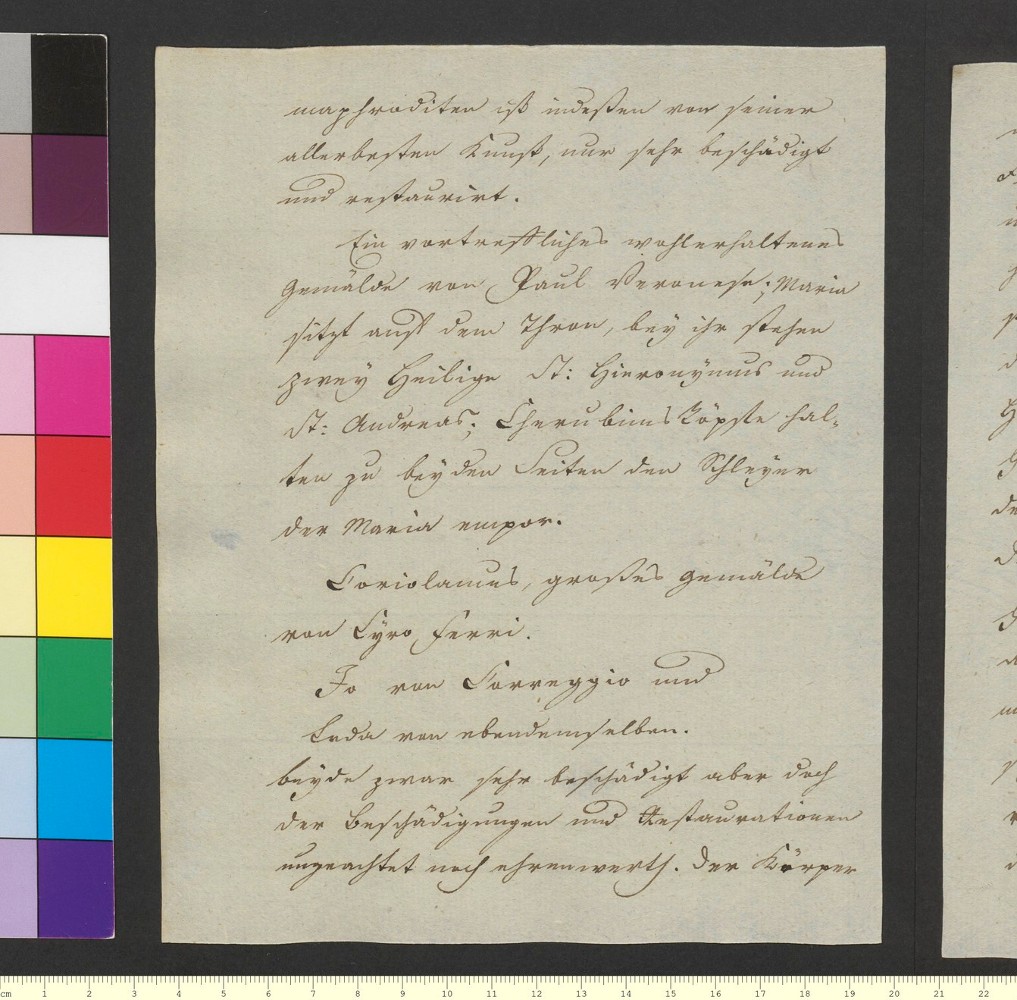 maphroditen ist indeßen von seiner
allerbesten Kunst, nur sehr beschädigt
und restaurirt.
Ein vortreffliches wohlerhaltenes
Gemälde von Paul Veronese; Maria
sitzt auf dem Thron, bey ihr stehen
zwey Heilige St: Hieronÿmus und
St: Andreas; Cherubims Köpfe hal-
ten zu beyden Seiten den Schleyer
der Maria empor.
Coriolanus, großes Gemälde
von Cyro Ferri.
Jo von Correggio und
Leda von ebendemselben.
beyde zwar sehr beschädigt aber doch
der Beschädigungen und Restaurationen
ungeachtet noch ehrenwerth. Der Körper
cm 1 2 3 4 5 6 7 8 9 10 11 12 13 14 15 16 17 18 19 20 21 22